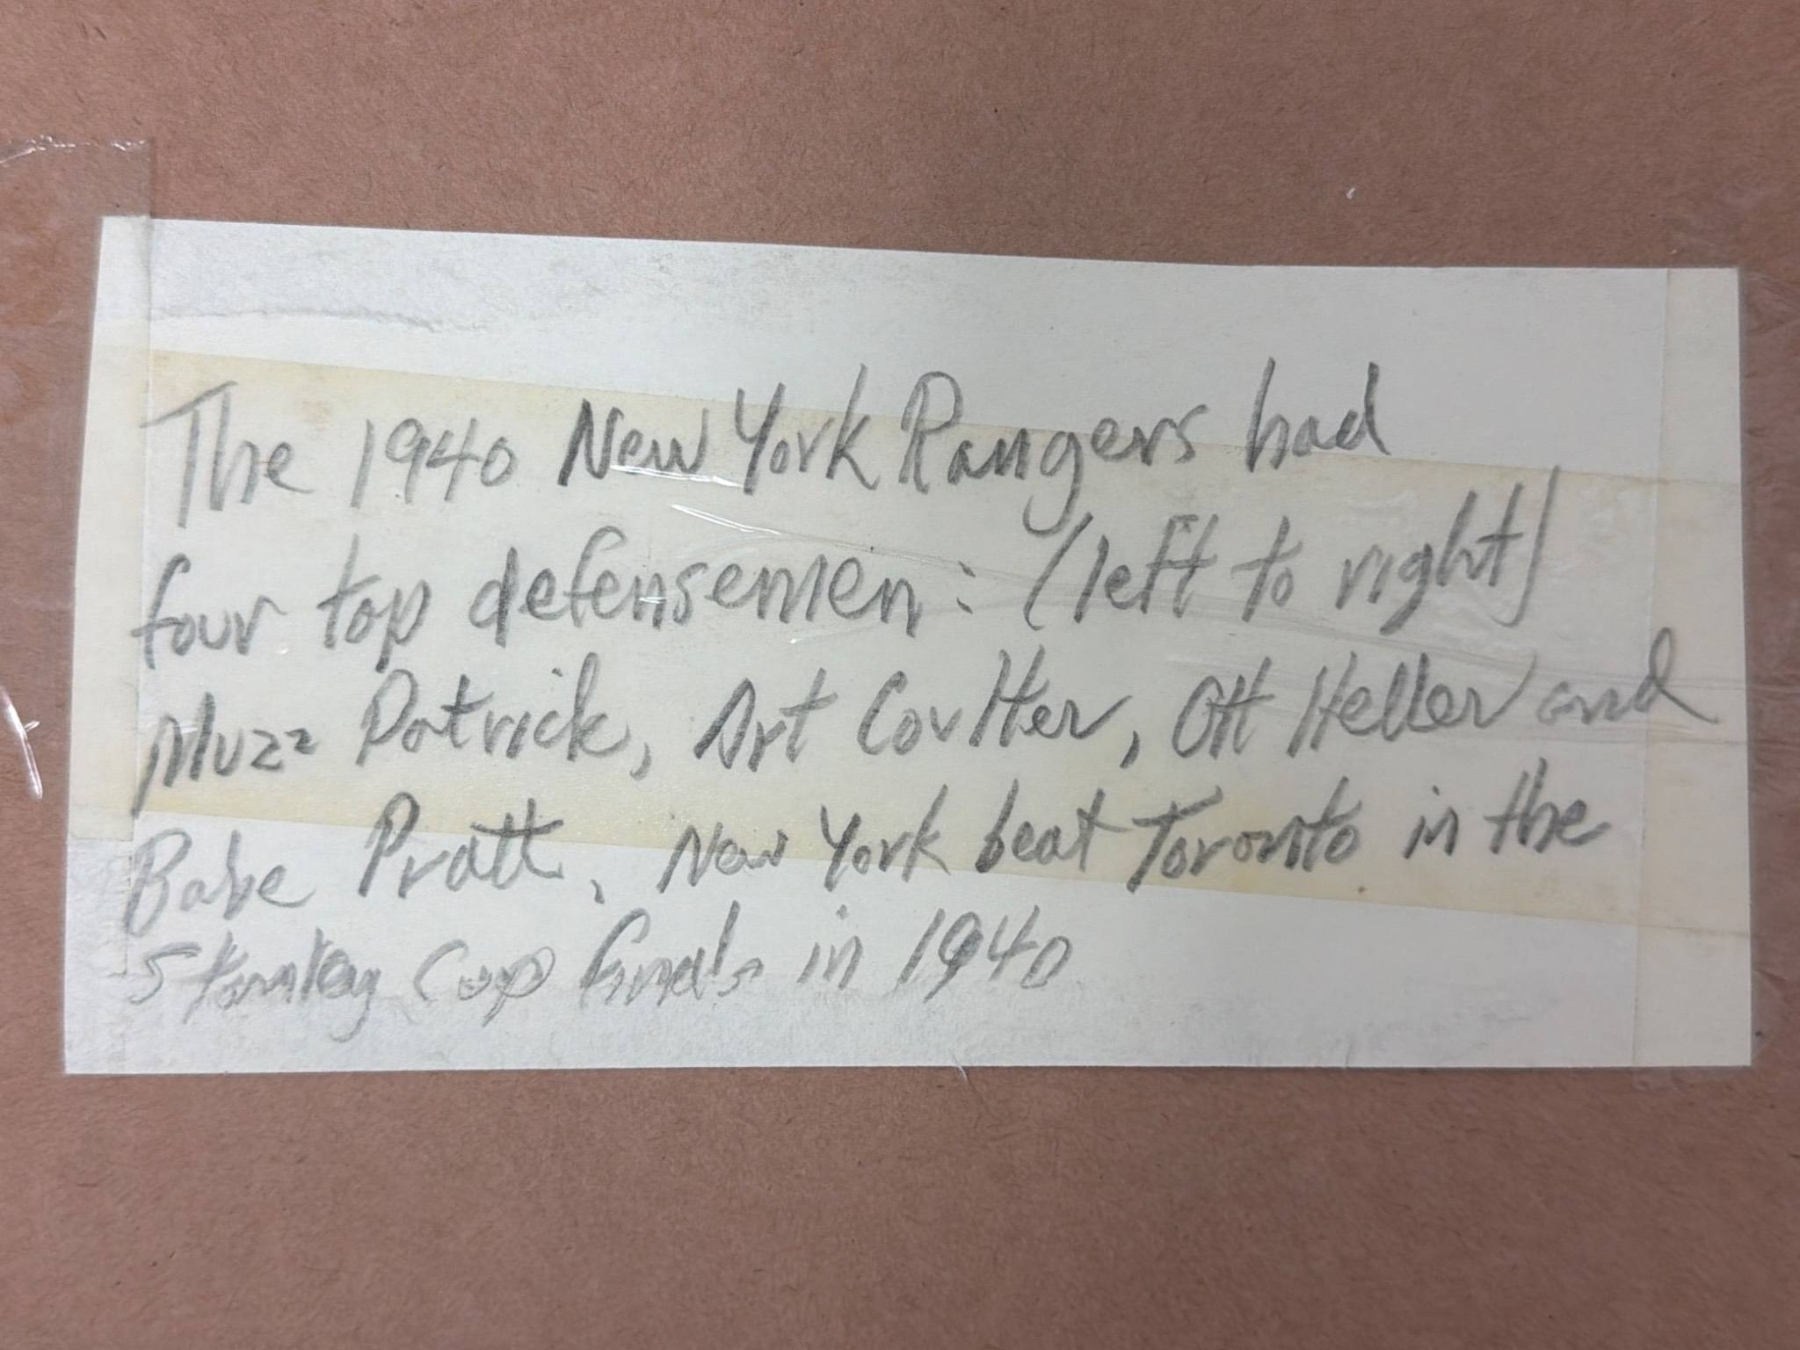 The 1940 New York Rangers had
four top defensemen: (left to right)
Muzz Patrick, Art Coulter, Ott Heller and
Babe Pratt, New York beat Toronto in the
Stanley Cup finals in 1940